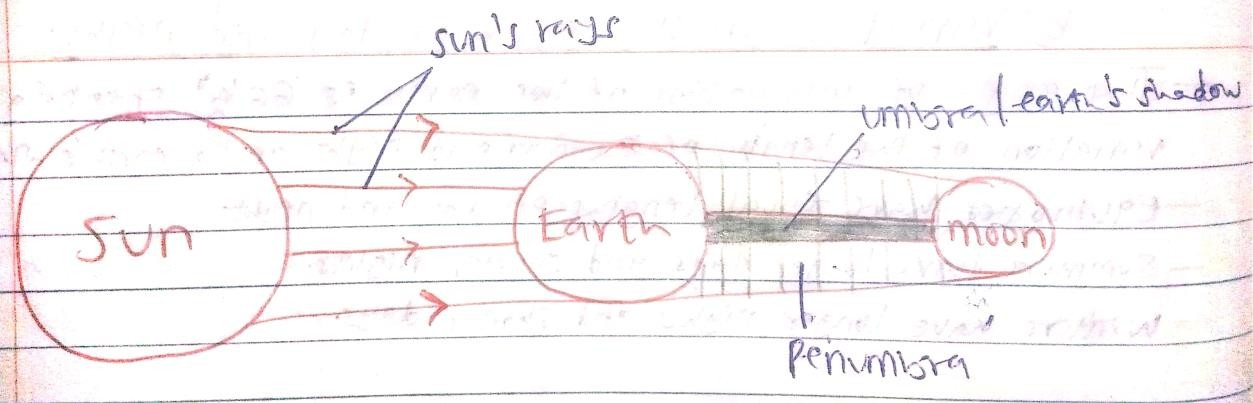 sun's rays
umbra/earth's shadow
Sun
Earth
moon
Penumbra